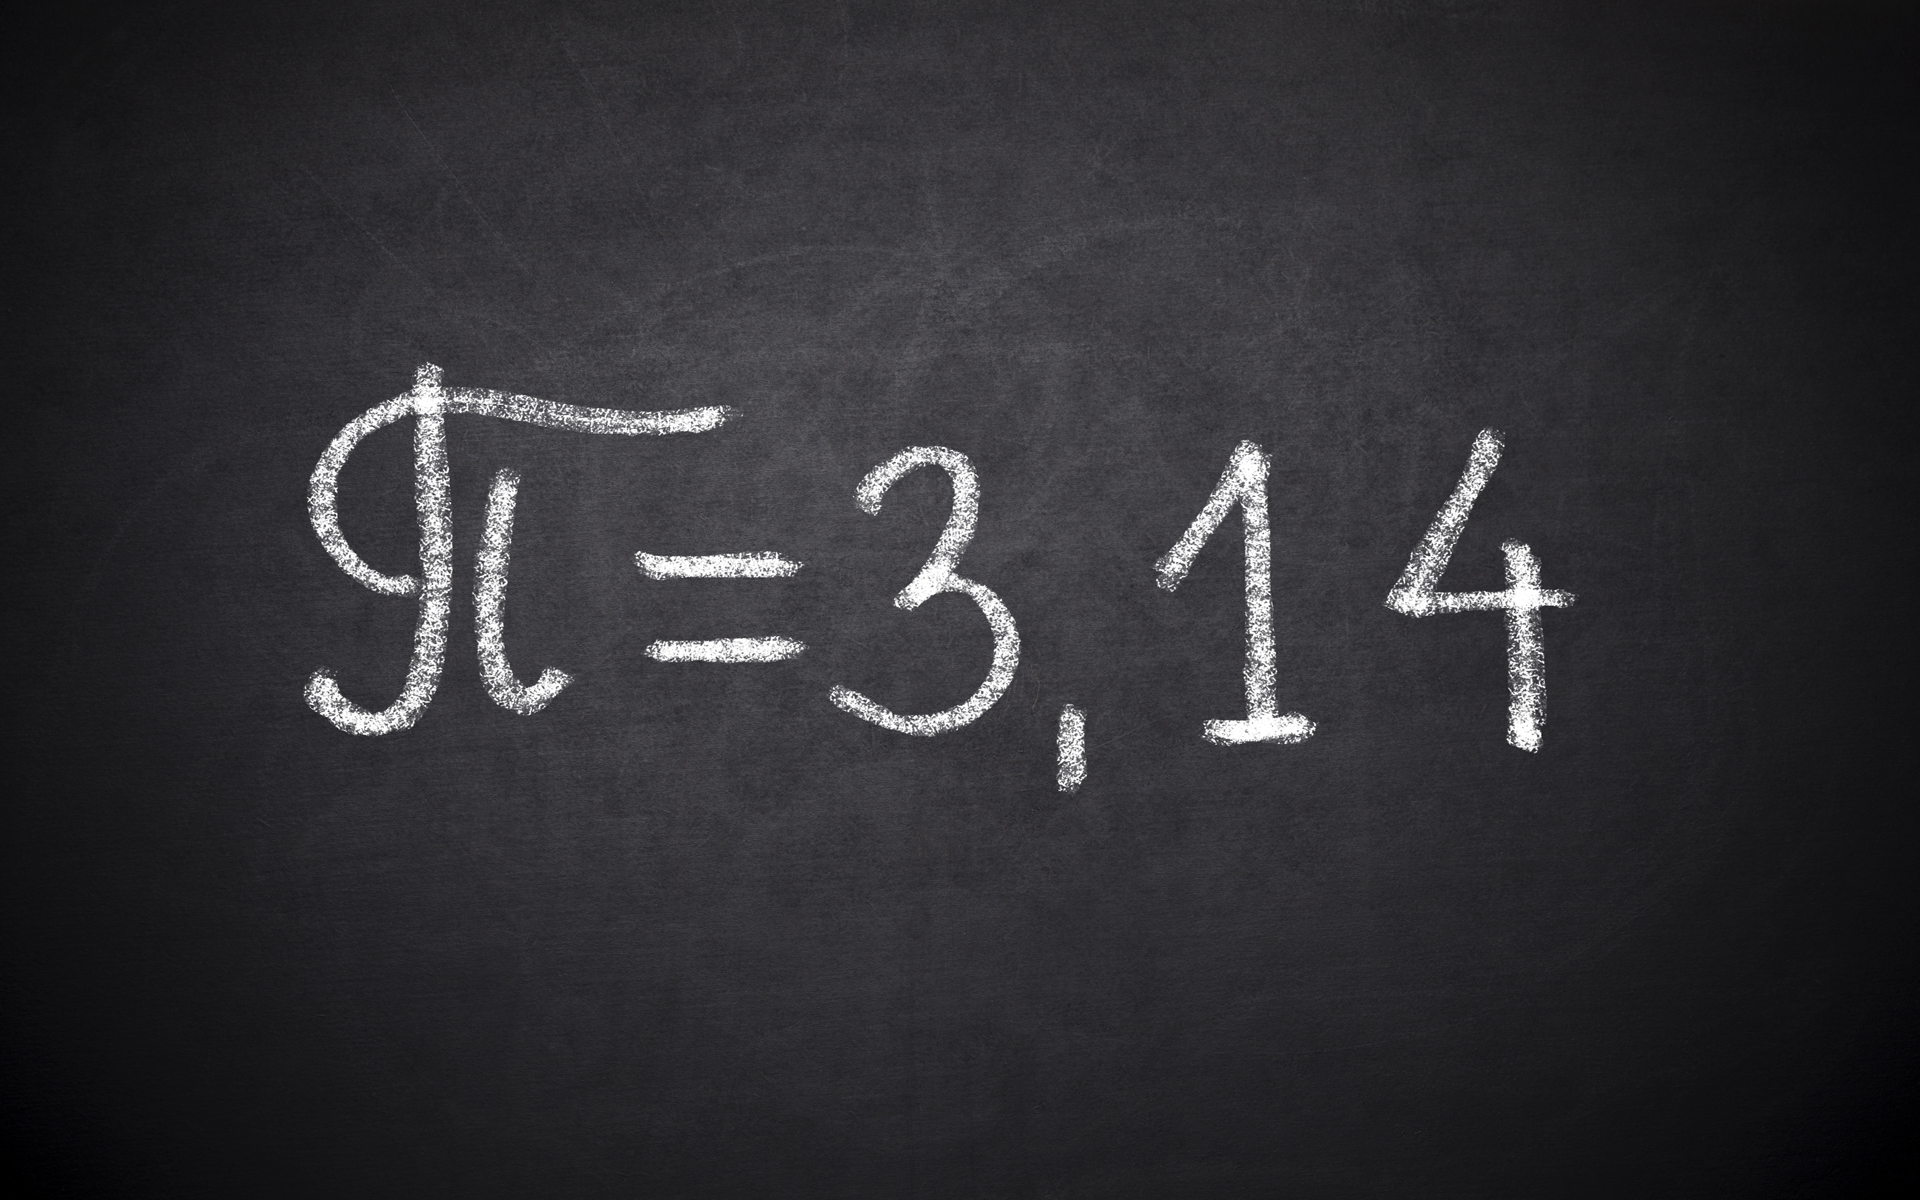 π=3,14